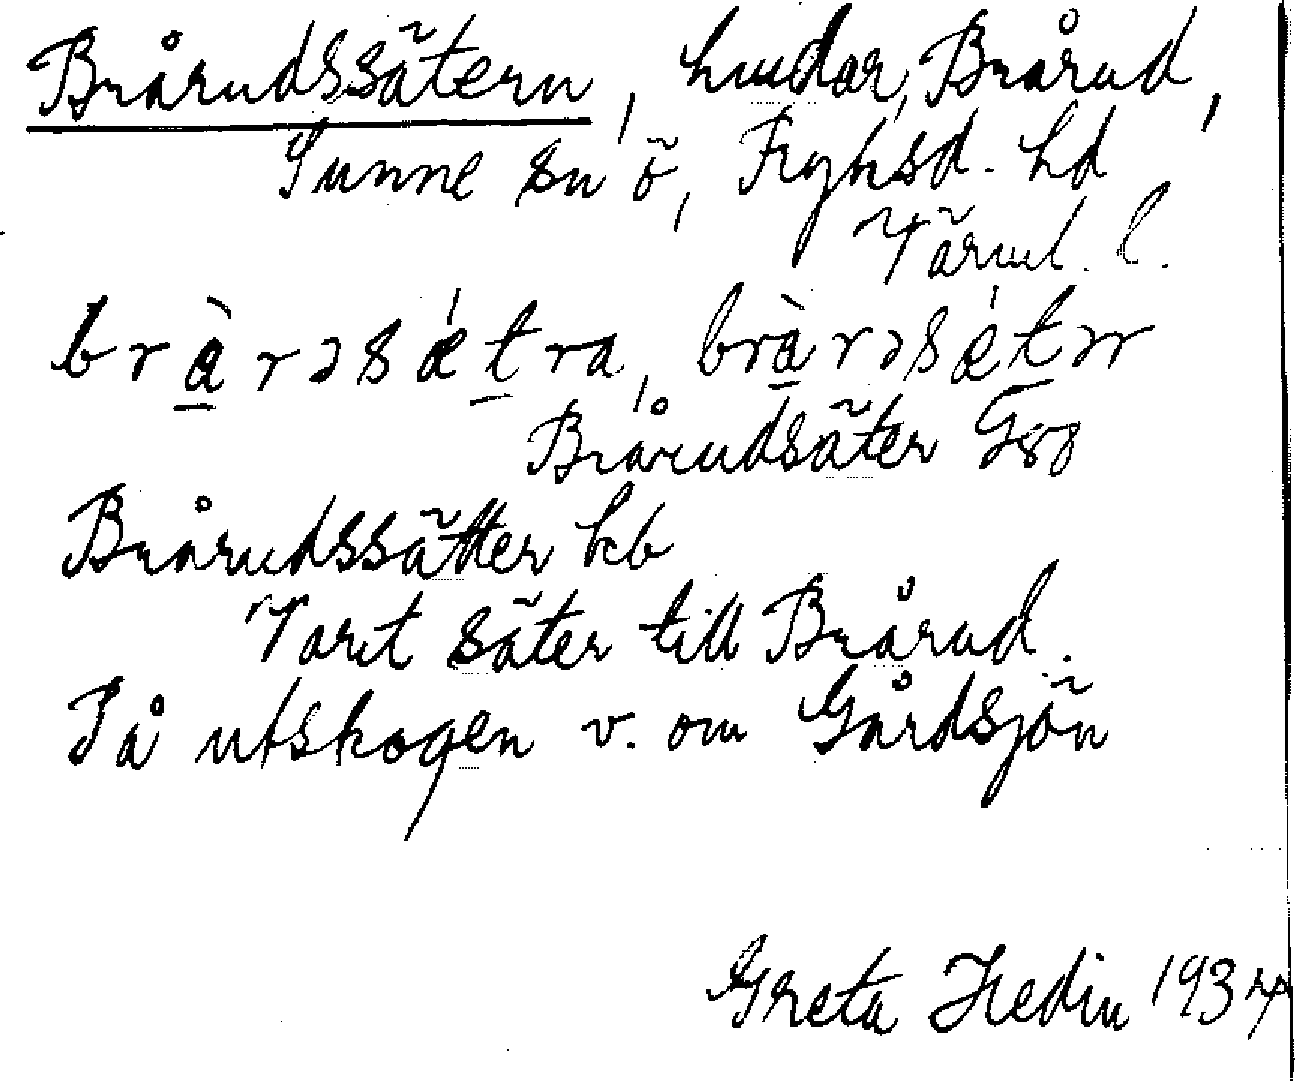 Brårudssätern, hmdar, Brårud,
Sunne sn ö, Fryksd. hd
Värml. l.
bràrəsǽtra, bràrəsǽtər
Brårudsäter G88
Brårudssätter kb
Varit säter till Brårud.
På utskogen v. om Gårdsjön
Greta Hedin 1934